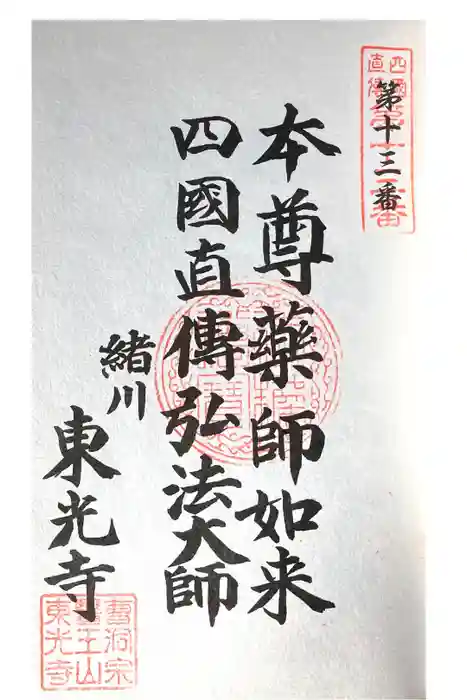 第十三番
四國
直傳
第十三番
本尊薬師如来
四國直傳弘法大師
緒川
東光寺
曹洞宗
醫王山
東光寺